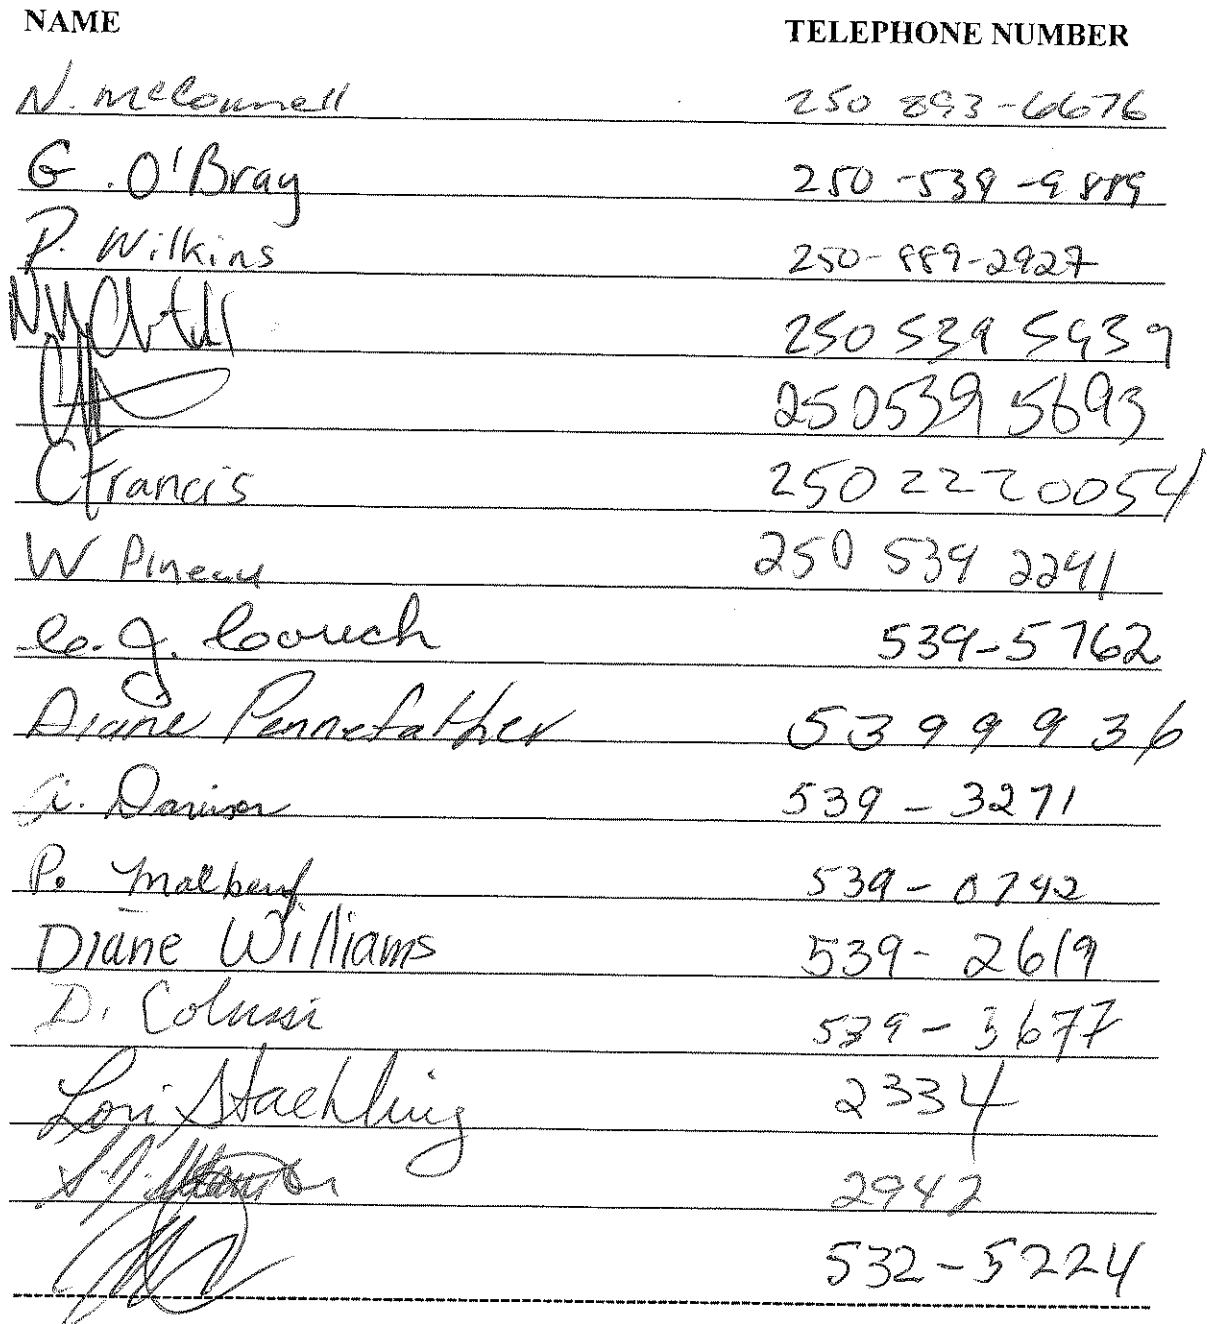 NAME TELEPHONE NUMBER
N. McConnell 250 893-6676
G. O'Bray 250-539-9889
P. Wilkins 250-889-2927
250 539 5939
250 539 5693
C Francis 250 222 0054
W Pineau 250 539 2241
C. J. Couch 539-5762
Diane Pennefather 539 9936
539-3271
P. 539-0742
Diane Williams 539-2619
D. Colussi 539-3677
Lori Staehling 2334
2942
532-5224